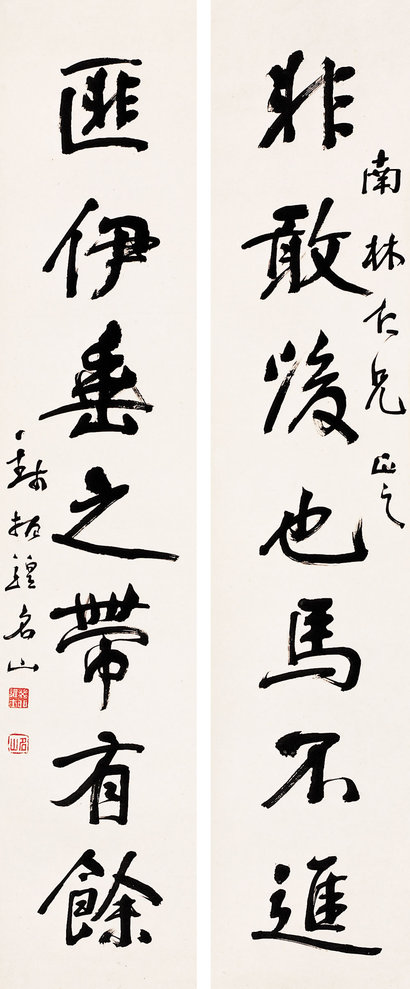 非敢後也馬不進
南林仁兄正之
匪伊垂之帶有餘
錢振鍠名山
名山